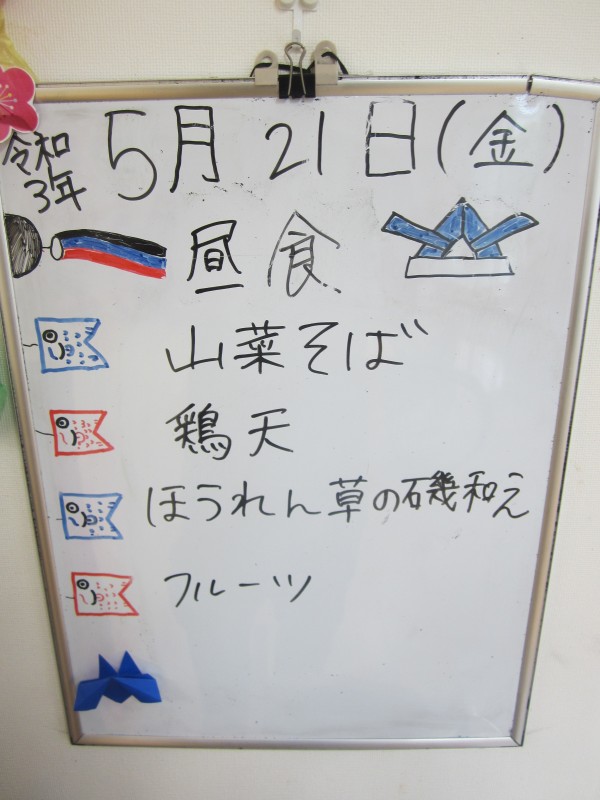 令和
3年
5月21日(金)
昼食
山菜そば
鶏天
ほうれん草の磯和え
フルーツ